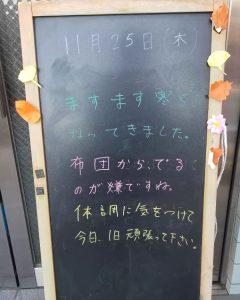 11月25日(木)
ますます寒く
なってきました。
布団から、でる
のが嫌ですね。
体調に気をつけて
今日、1日頑張って下さい。